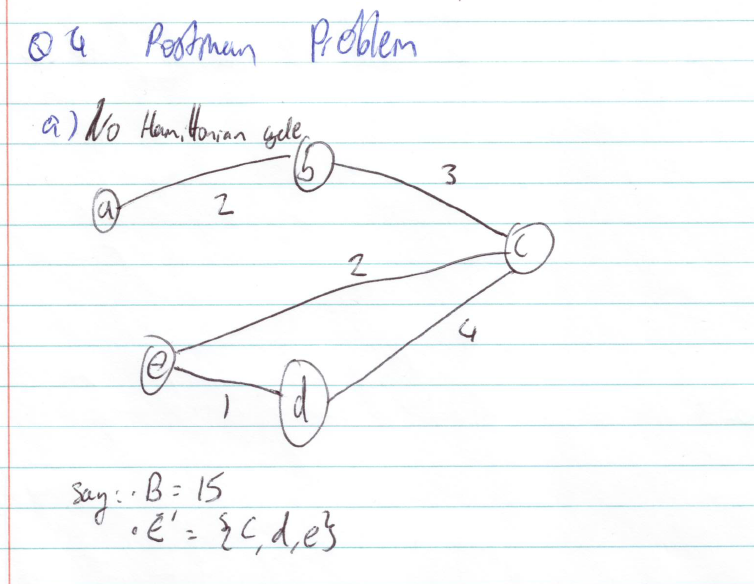 Q4 Postman Problem
a) No Hamiltonian cycle
b
3
a
2
c
2
4
e
1
d
say: · B = 15
· E' = {c, d, e}